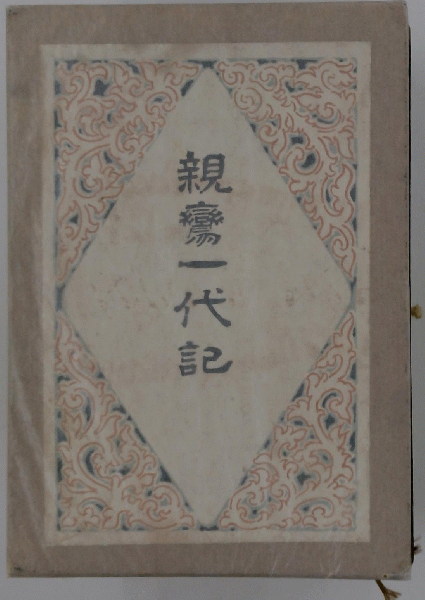 親鸞一代記